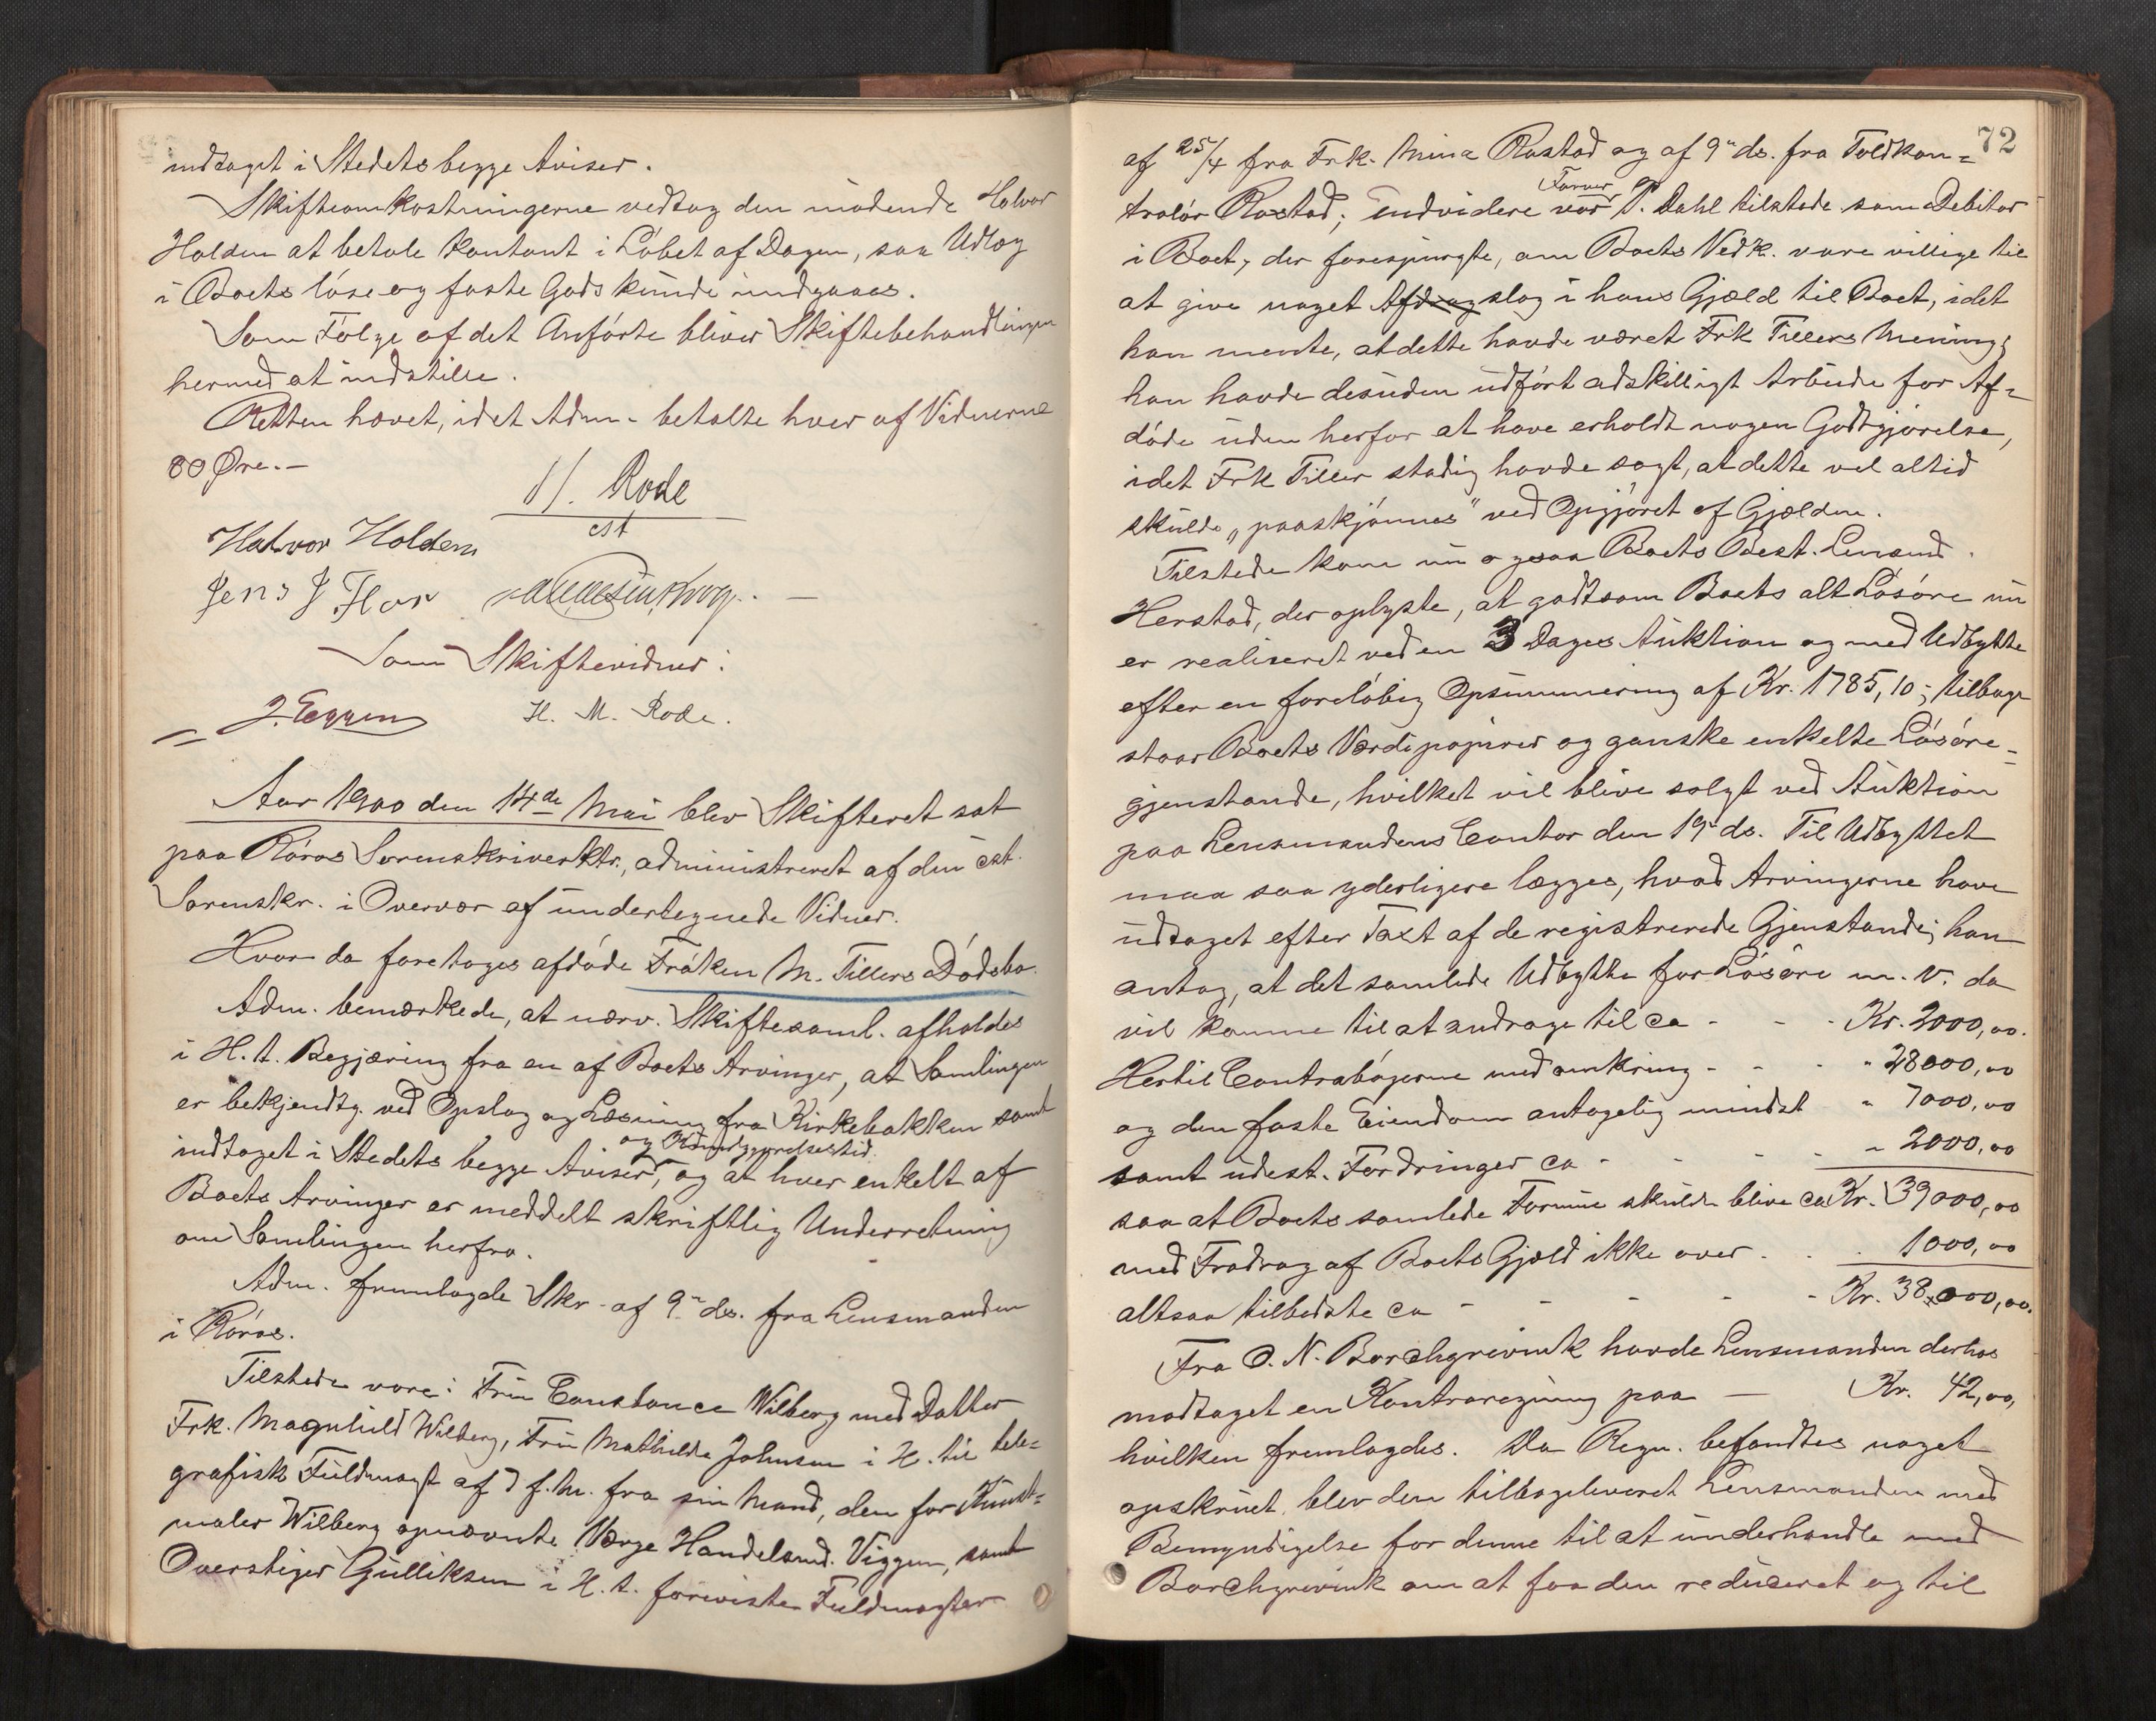 indtaget i Stedets begge Aviser.
Skifteomkostningerne vedtog den mødende Halvor
Holden at betale kontant i Løbet af Dagen, saa Udlæg
i Boets løse og faste Gods kunde undgaaes.
Som Følge af det Anførte bliver Skiftebehandlingen
hermed at indstille.
Retten hævet, idet Adm. betalte hver af Vidnerne
80 Øre.-
Rode
cst
Halvor Holden
Jens J Flor
Som Skiftevidner:
J. Eggen H. M. Rode.
Aar 1900 den 14de Mai blev Skifteret sat
paa Røros Sorenskriverktr., administreret af den cst.
Sorenskr. i Overvær af undertegnede Vidner.
Hvor da foretoges afdøde Frøken M. Tillers Dødsbo.
Adm. bemærkede, at nærv. Skiftesaml. afholdes
i H. t. Begjæring fra en af Boets Arvinger, at Samlingen
er bekjendtg. ved Opslag og Læsning fra Kirkebakken samt
og Kundgjørelsestid.
indtaget i Stedets begge Aviser, og at hver enkelt af
Boets Arvinger er meddelt skriftlig Underretning
om Samlingen herfra.
Adm. fremlagde Skr. af 9n ds. fra Lensmanden
i Røros.
Tilstede vare: Fru Constance Wilberg med Datter
Frk. Magnhild Wilberg, Fru Mathilde Johnsen i H. til tele=
grafisk Fuldmagt af 7 f. M. fra sin Mand, den for Kunst=
maler Wilberg opnævnte Værge Handelsmd. Viggen, samt
Overstiger Gulliksen i H. t. foreviste Fuldmagter
72
af 25/4 fra Frk. Mina Rastad og af 9n ds. fra Toldkon=
Farver
trolør Rastad; endvidere var P. Dahl tilstede som Debitor
i Boet, der forespurgte, om Boets Vedk. vare villige til
at give noget Afdragslag i hans Gjæld til Boet, idet
han mente, at dette havde været Frk Tillers Mening;
han havde desuden udført adskilligt Arbeide for Af=
døde uden herfor at have erholdt nogen Godtgjørelse,
idet Frk Tiller stadig havde sagt, at dette vel altid
skulde „paaskjønnes" ved Opgjøret af Gjælden.
Tilstede kom nu ogsaa Boets Best. Lensmd.
Herstad, der oplyste, at godtsom Boets alt Løsøre nu
er realiseret ved en 3 Dages Auktion og med Udbytte
efter en foreløbig Opsummering af Kr. 1785,10; tilbage
staar Boets Værdipapirer og ganske enkelte Løsøre=
gjenstande, hvilket vil blive solgt ved Auktion
paa Lensmandens Contor den 19n ds. Til Udbyttet
maa saa yderligere lægges, hvad Arvingerne have
udtaget efter Taxt af de registrerede Gjenstande; han
antog, at det samlede Udbytte for Løsøre m. v. da
vil komme til at andrage til ca - - - Kr. 2000,00.
Hertil Contrabøgerne med omkring - - - " 28000,00
og den faste Eiendom antagelig mindst " 7000,00
samt udest. Fordringer ca - - - " 2000,00
saa at Boets samlede Formue skulde blive ca Kr. 39000,00
med Fradrag af Boets Gjæld ikke over - - - 1000,00
altsaa tilbedste ca - - - - Kr. 38000,00.
Fra O. N. Borchgrevink havde Lensmanden derhos
modtaget en Kontraregning paa - Kr. 42,00,
hvilken fremlagdes. Da Regn. befandtes noget
opskruet, blev den tilbageleveret Lensmanden med
Bemyndigelse for denne til at underhandle med
Borchgrevink om at faa den reduceret og til